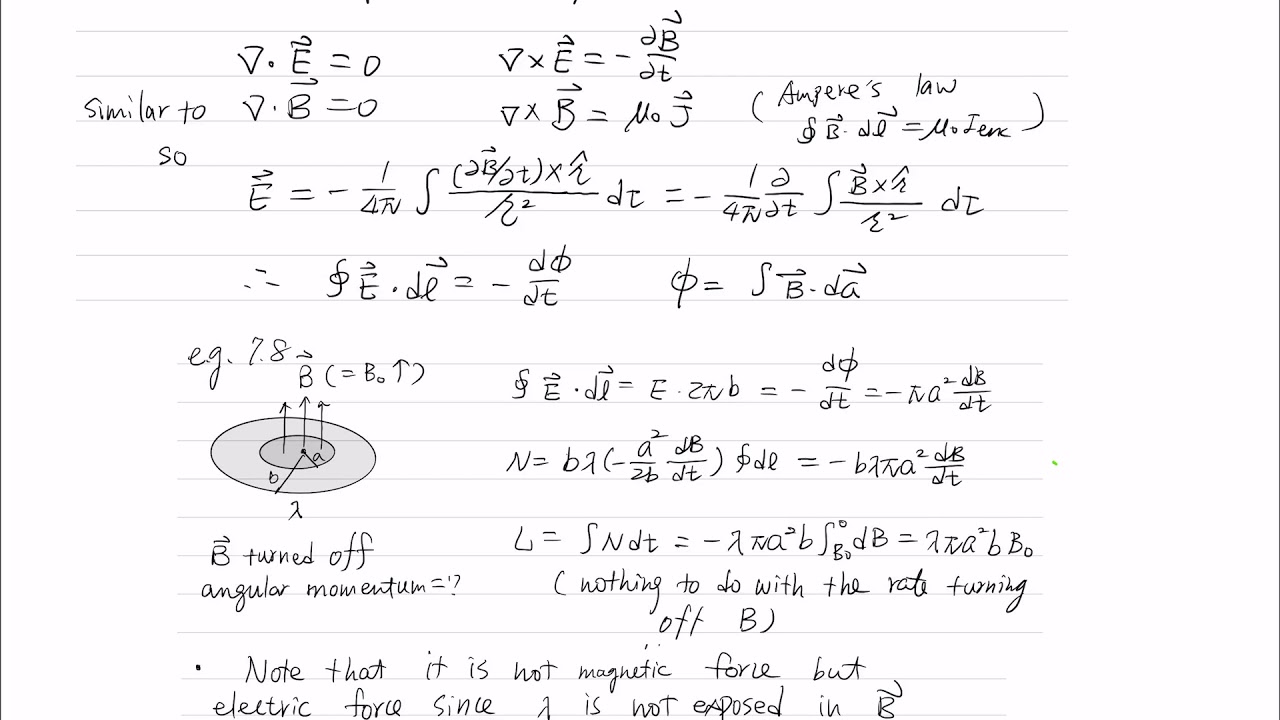 ∇·E⃗ = 0    ∇×E⃗ = -∂B⃗/∂t
similar to ∇·B⃗ = 0    ∇×B⃗ = μ₀J⃗ (Ampere's law ∮B⃗·dl⃗ = μ₀Ienc)
so
E⃗ = -1/4π ∫ (∂B⃗/∂t)×r̂/r² dτ = -1/4π ∂/∂t ∫ B⃗×r̂/r² dτ
∴ ∮E⃗·dl⃗ = -dϕ/dt    ϕ = ∫B⃗·da⃗
e.g. 7.8
B⃗ (=B₀↑)
a
b
λ
B⃗ turned off
angular momentum=?
∮E⃗·dl⃗ = E·2πb = -dϕ/dt = -πa² dB/dt
N = bλ(-a²/2b dB/dt) ∮dl = -bλπa² dB/dt
L = ∫Ndt = -λπa²b ∫_B₀^0 dB = λπa²bB₀
(nothing to do with the rate turning
off B)
• Note that it is not magnetic force but
electric force since λ is not exposed in B⃗